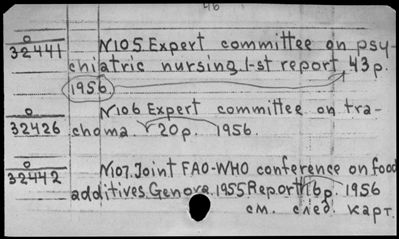 46
0
32441 N105. Expert committee on psy-
chiatric nursing. 1-st report 43p.
1956
0
32426 N106 Expert committee on tra-
choma. 20p. 1956.
0
32442 N107. Joint FAO-WHO conference on food
additives. Genova. 1955 Report 16p. 1956
см. след. карт.